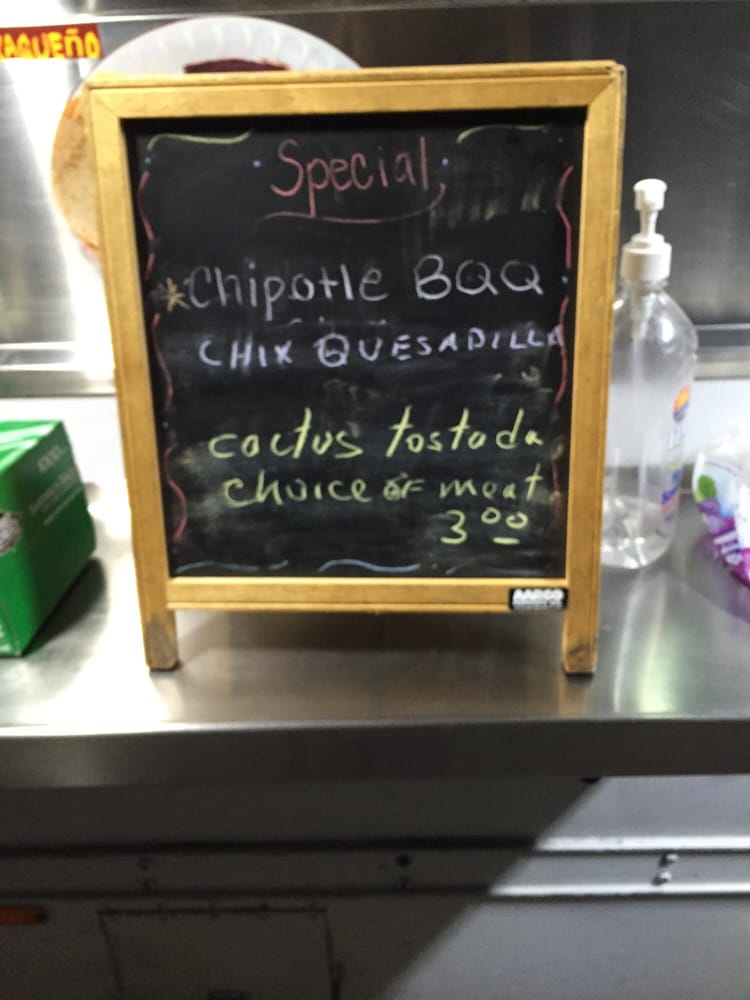 XAQUEÑO
Special
*Chipotle BQQ
CHIX QUESADILLA
cactus tostada
choice of meat
3 00
AARCO